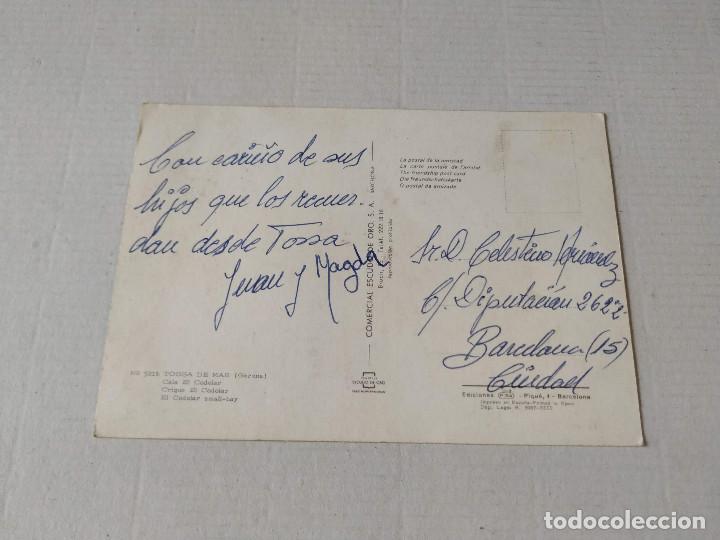 Con cariño de sus
hijos que los recuer-
dan desde Tossa
Juan y Magda
COMERCIAL ESCUDO DE ORO, S. A.
La postal de la amistad
La carte postale de l'amitié
The friendship post card
Die Freundschaftskarte
O postal da amizade
Sr. D. Celestino
C/ Diputación 262
Barcelona (15)
Ciudad
TOSSA DE MAR (Gerona)
Cala El Codolar
Crique El Codolar
El Codolar small-bay
ESCUDO DE ORO
Ediciones - Piqué, 4 - Barcelona
todocoleccion
todocoleccion.net